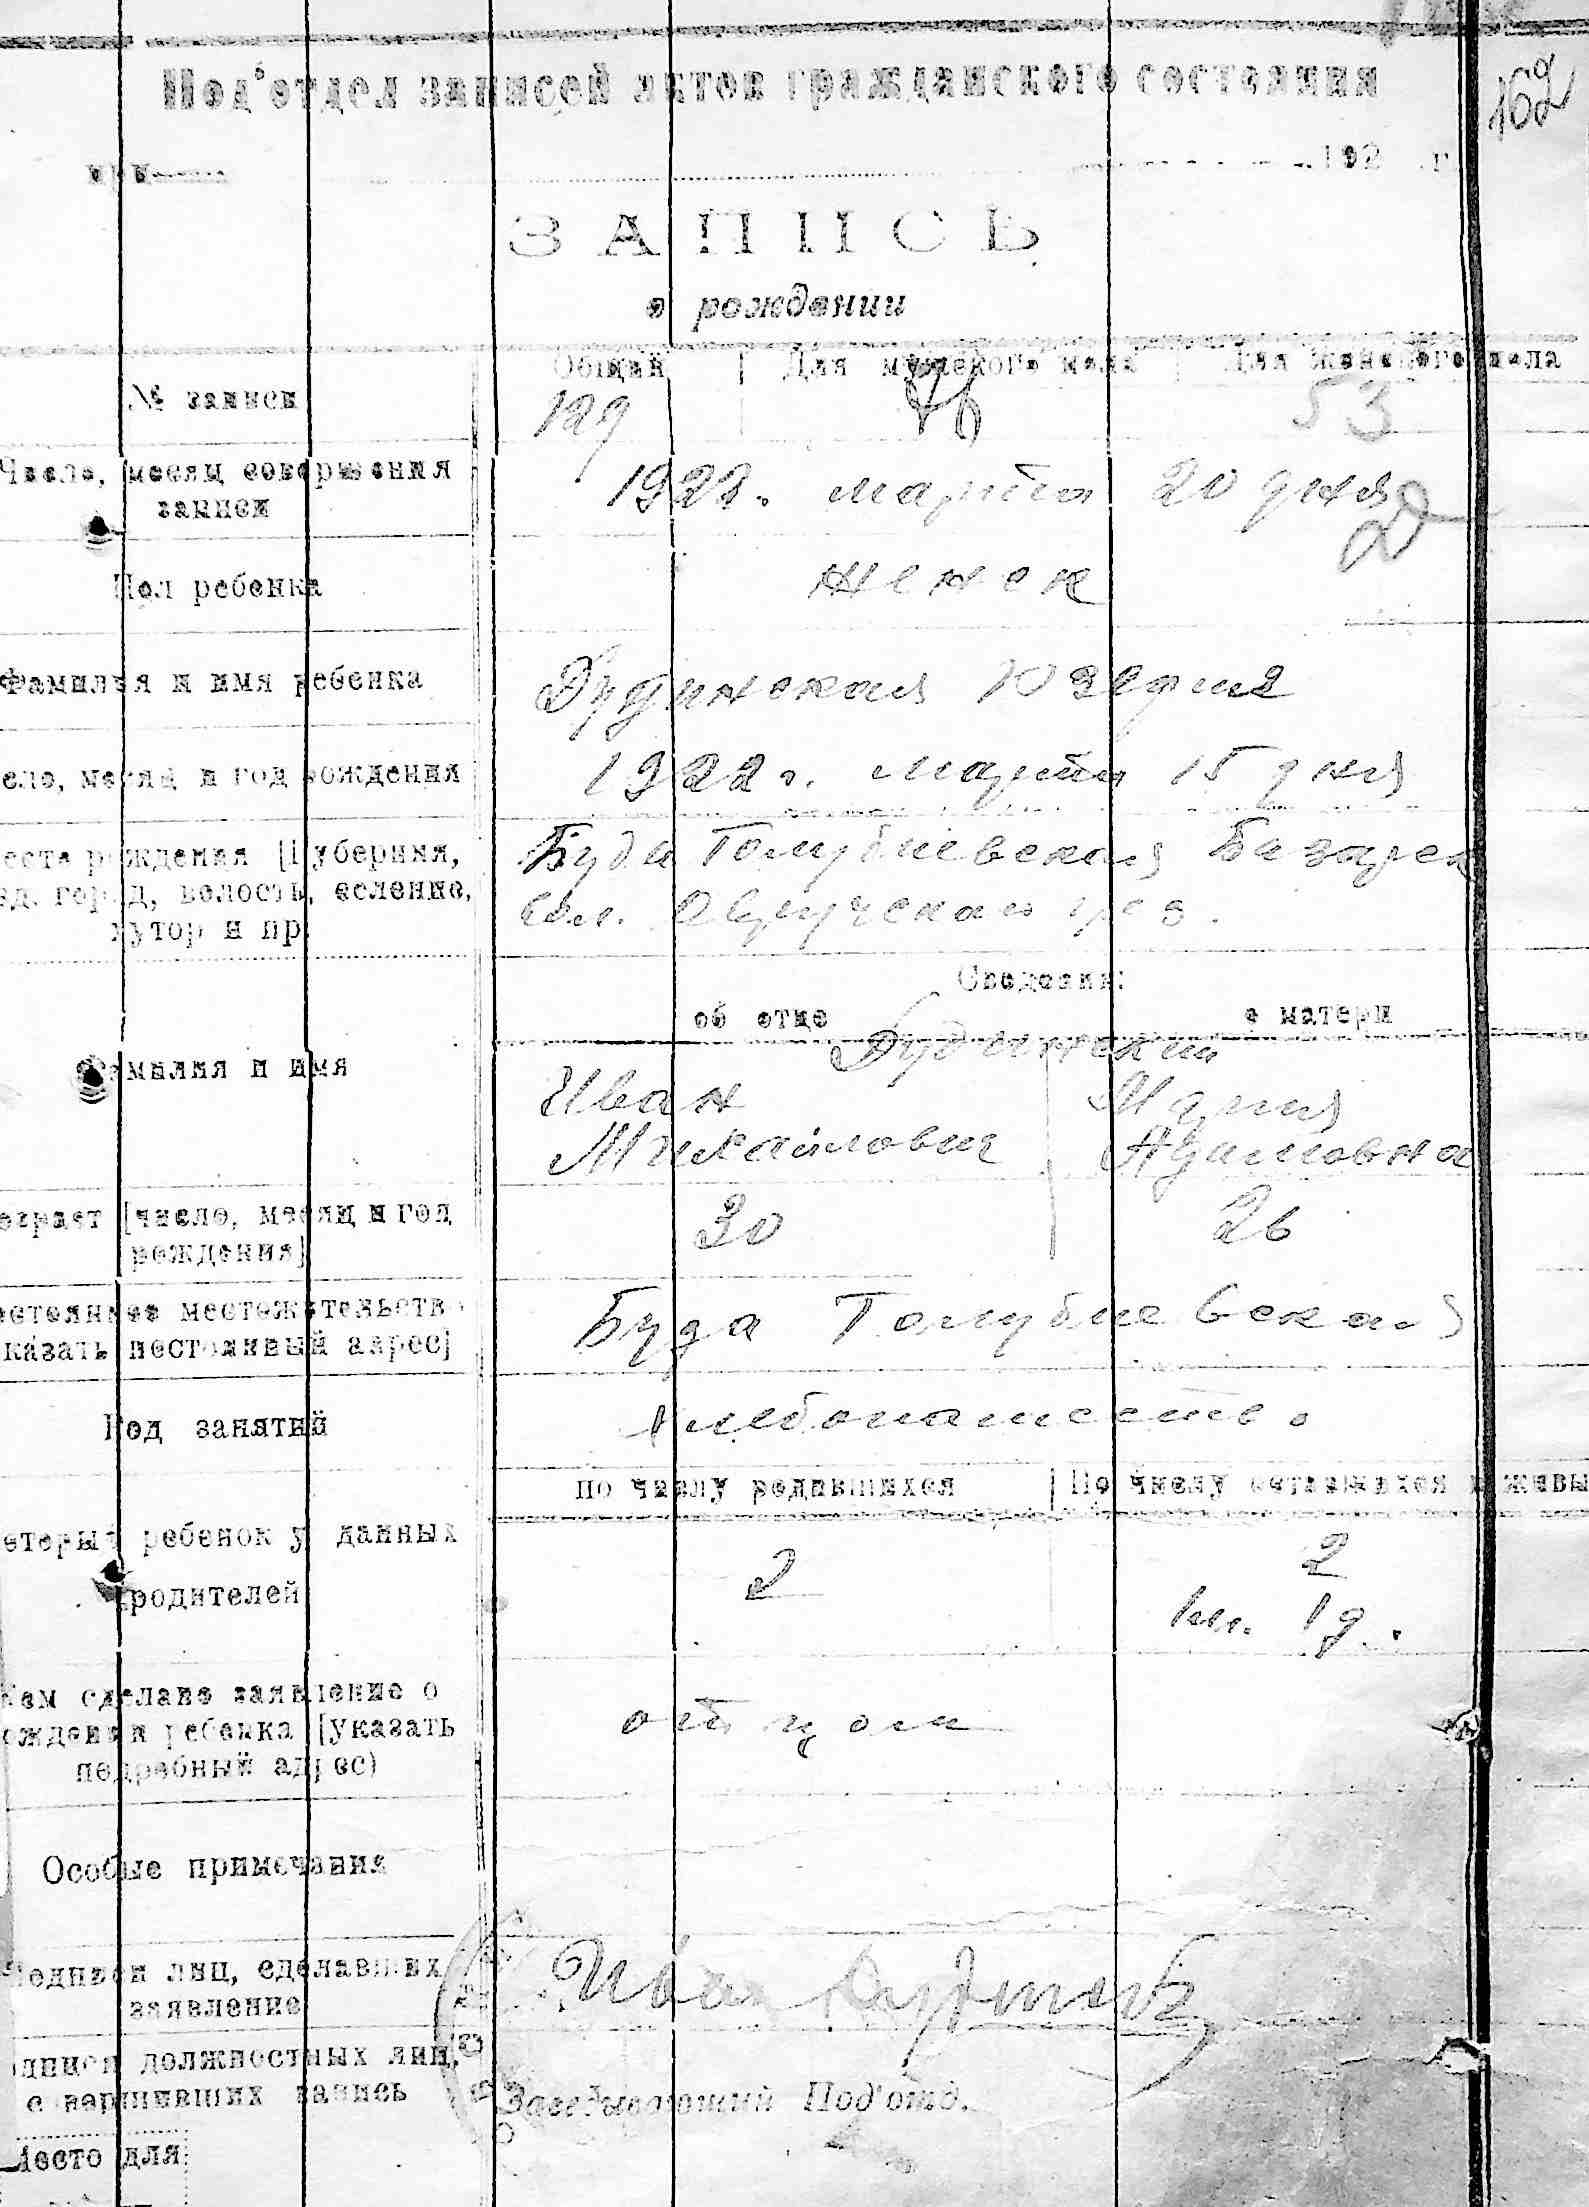 Под'отдел записей актов гражданского состояния
162
при
192 г.
ЗАПИСЬ
о рождении
№ записи
Общий Для мужского пола Для женского пола
129 76 53
Число, месяц совершения записи
1922. марта 20 дня
Пол ребенка
женск
Фамилия и имя ребенка
Дудинская Юзефия
сло, месяц и год рождения
1922 г. марта 15 дня
еста рождения [Губерния,
зд. город, волость, селение,
хутор и пр.
Буда Голубиевская Базарск
вол. Овручская уез.
Сведения:
об отце о матери
Фамилия и имя
Дудинские
Иван Мария
Михайлович Адамовна
озраст [число, месяц и год
рождения]
30 26
остоянное местожительство
казать постоянный адрес]
Буда Голубиевская
Род занятий
хлебопашество
по числу родившихся По числу оставшихся в живы
оторый ребенок у данных
родителей
2 2
1м. 1д.
Кем сделано заявление о
ождении ребенка [указать
подробный адрес)
отцом
Особые примечания
Подписи лиц, сделавших
заявление
Иван
одписи должностных лиц,
совершивших запись
Заведывающий Под'отд.
Место для